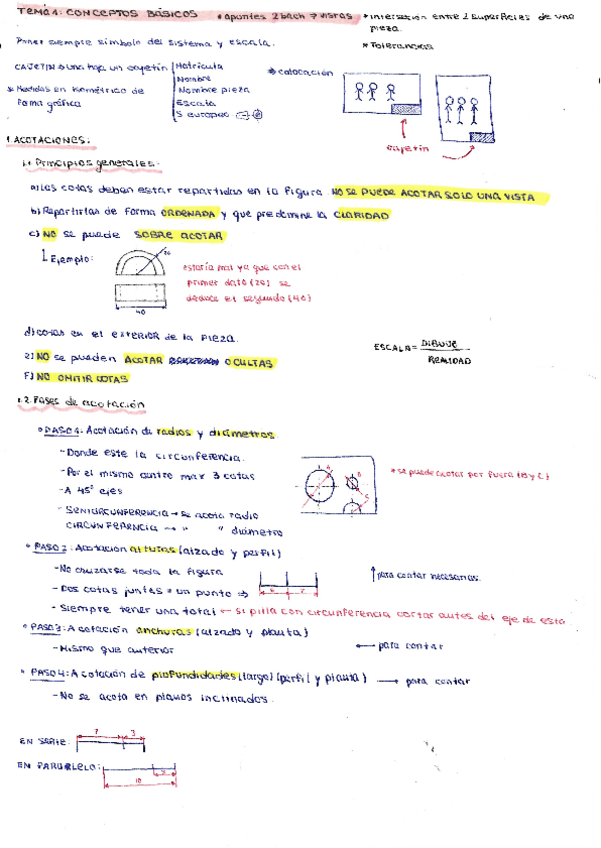 TEMA 1: CONCEPTOS BÁSICOS * apuntes 2 bach → vistas * intersección entre 2 superficies de una pieza
Poner siempre símbolo del sistema y escala.
* Tolerancias
CAJETÍN una hoja un cajetín
Matrícula
Nombre
Nombre pieza
Escala
S europeo
* Medidas en isométrico de forma gráfica
→ colocación
cajetín
1. ACOTACIONES:
1.1 Principios generales:
a) Las cotas deben estar repartidas en la figura NO SE PUEDE ACOTAR SOLO UNA VISTA
b) Repartirlas de forma ORDENADA y que predomine la CLARIDAD
c) NO se puede SOBRE ACOTAR
Ejemplo:
20
40
estaría mal ya que con el
primer dato (20) se
deduce el segundo (40)
d) cotas en el exterior de la pieza.
e) NO se pueden ACOTAR OCULTAS
F) NO OMITIR COTAS
ESCALA = DIBUJO
REALIDAD
1.2. Pases de acotación
PASO 1: Acotación de radios y diámetros
- Donde este la circunferencia.
- Por el mismo centro max 3 cotas
- A 45º ejes
- SEMICIRCUNFERENCIA → se acota radio
CIRCUNFERENCIA → " " diámetro
A
B
C
* se puede acotar por fuera (B y C)
PASO 2: Acotación alturas (alzado y perfil)
- No cruzarse toda la figura
- Dos cotas juntas = un punto ⇒
6 7
↑ para contar necesarias.
- Siempre tener una total ← si pilla con circunferencia cortar antes del eje de esta
PASO 3: Acotación anchuras (alzado y planta)
- Mismo que anterior
←→ para contar
PASO 4: Acotación de profundidades (largo) (perfil y planta) → para contar
- No se acota en planos inclinados.
EN SERIE:
7 3
EN PARALELO:
10